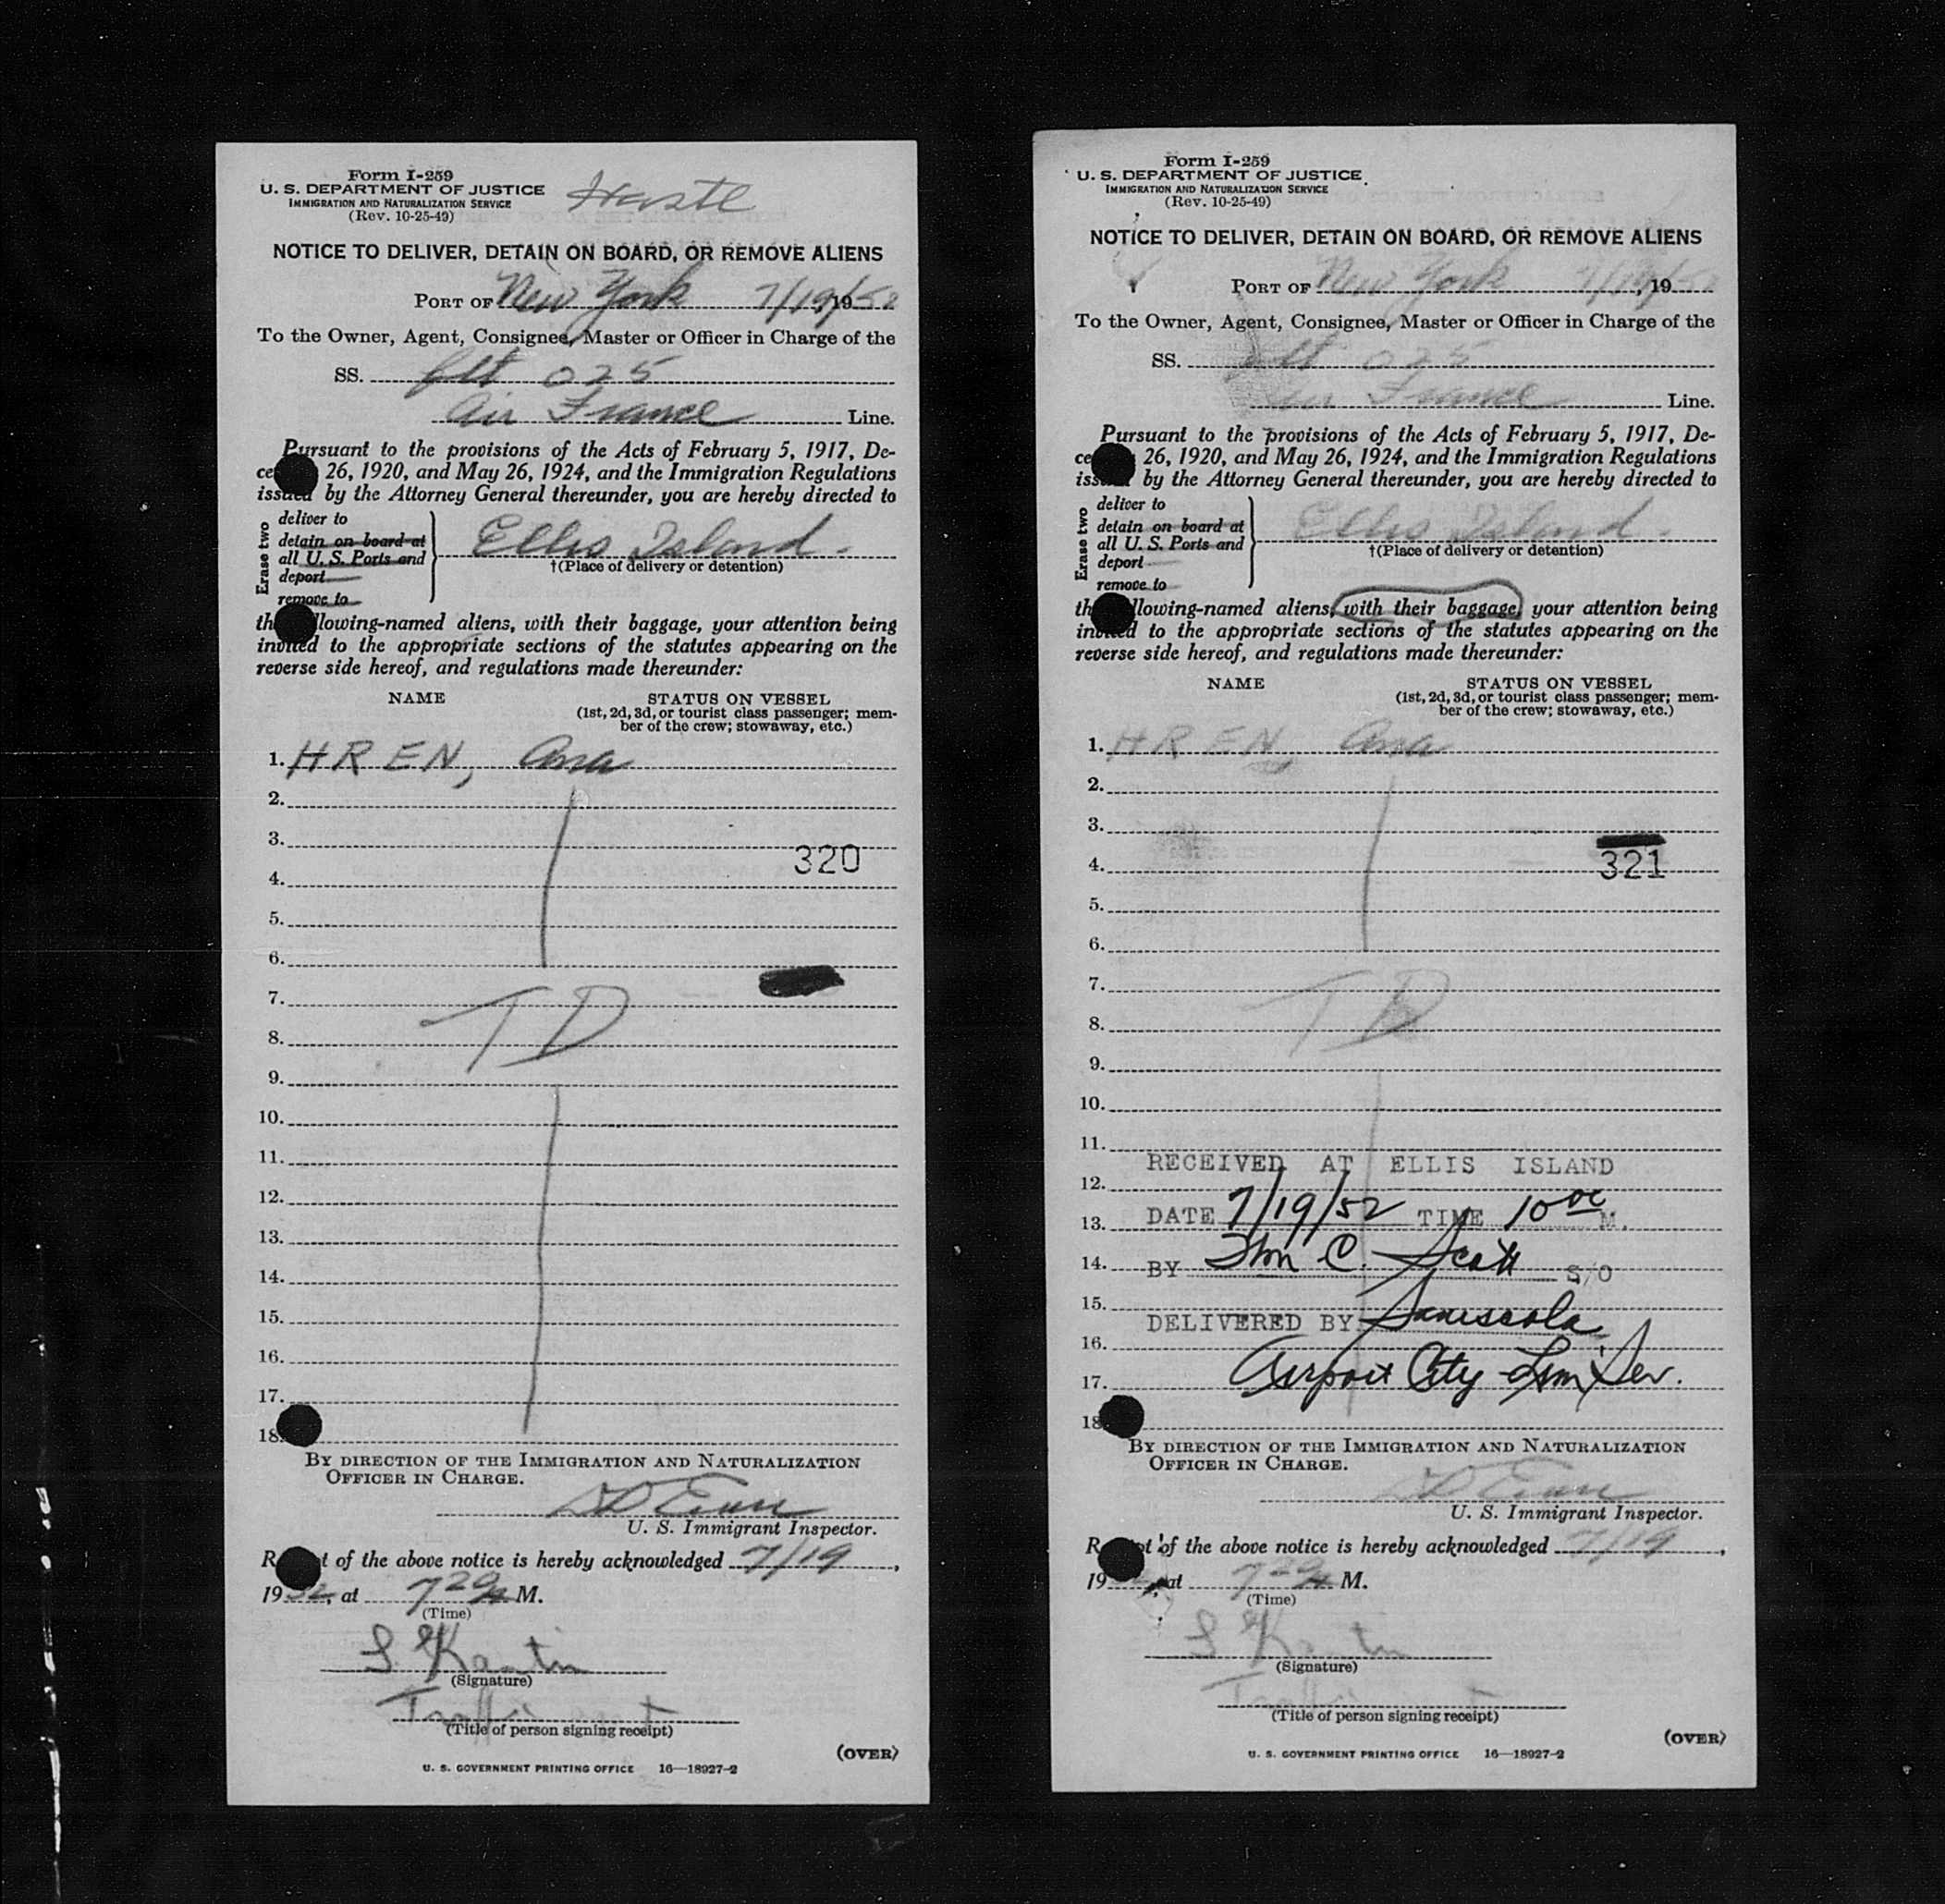 Form I-259
U. S. DEPARTMENT OF JUSTICE
IMMIGRATION AND NATURALIZATION SERVICE
(Rev. 10-25-49)
NOTICE TO DELIVER, DETAIN ON BOARD, OR REMOVE ALIENS
PORT OF New York 7/19, 1952
To the Owner, Agent, Consignee, Master or Officer in Charge of the
SS. flt 025
Air France Line.
Pursuant to the provisions of the Acts of February 5, 1917, De-
ce 26, 1920, and May 26, 1924, and the Immigration Regulations
issued by the Attorney General thereunder, you are hereby directed to
Erase two
deliver to
detain on board at
all U. S. Ports and
deport
remove to
Ellis Island.
†(Place of delivery or detention)
the following-named aliens, with their baggage, your attention being
invited to the appropriate sections of the statutes appearing on the
reverse side hereof, and regulations made thereunder:
NAME STATUS ON VESSEL
(1st, 2d, 3d, or tourist class passenger; mem-
ber of the crew; stowaway, etc.)
1. HREN, Ana
2.
3.
320
4.
5.
6.
7.
TD
8.
9.
10.
11.
12.
13.
14.
15.
16.
17.
18.
BY DIRECTION OF THE IMMIGRATION AND NATURALIZATION
OFFICER IN CHARGE.
U. S. Immigrant Inspector.
Receipt of the above notice is hereby acknowledged 7/19,
1952, at 7 20 A M.
(Time)
S. Kantin
(Signature)
Traffic
(Title of person signing receipt)
(OVER)
U. S. GOVERNMENT PRINTING OFFICE 16—18927-2
Form I-259
U. S. DEPARTMENT OF JUSTICE
IMMIGRATION AND NATURALIZATION SERVICE
(Rev. 10-25-49)
NOTICE TO DELIVER, DETAIN ON BOARD, OR REMOVE ALIENS
PORT OF New York 7/19/52, 19
To the Owner, Agent, Consignee, Master or Officer in Charge of the
SS. flt 025
Air France Line.
Pursuant to the provisions of the Acts of February 5, 1917, De-
ce 26, 1920, and May 26, 1924, and the Immigration Regulations
issued by the Attorney General thereunder, you are hereby directed to
Erase two
deliver to
detain on board at
all U. S. Ports and
deport
remove to
Ellis Island.
†(Place of delivery or detention)
the following-named aliens, with their baggage, your attention being
invited to the appropriate sections of the statutes appearing on the
reverse side hereof, and regulations made thereunder:
NAME STATUS ON VESSEL
(1st, 2d, 3d, or tourist class passenger; mem-
ber of the crew; stowaway, etc.)
1. HREN, Ana
2.
3.
4. 321
5.
6.
7.
TD
8.
9.
10.
11.
RECEIVED AT ELLIS ISLAND
12.
DATE 7/19/52 TIME 10 00 M.
13.
14.
BY Wm C. Scott S/O
15.
DELIVERED BY
16.
Airport City Lim Ser.
17.
18
BY DIRECTION OF THE IMMIGRATION AND NATURALIZATION
OFFICER IN CHARGE.
U. S. Immigrant Inspector.
Receipt of the above notice is hereby acknowledged 7/19,
19 , at 7 20 A M.
(Time)
S. Kantin
(Signature)
Traffic
(Title of person signing receipt)
(OVER)
U. S. GOVERNMENT PRINTING OFFICE 16—18927-2